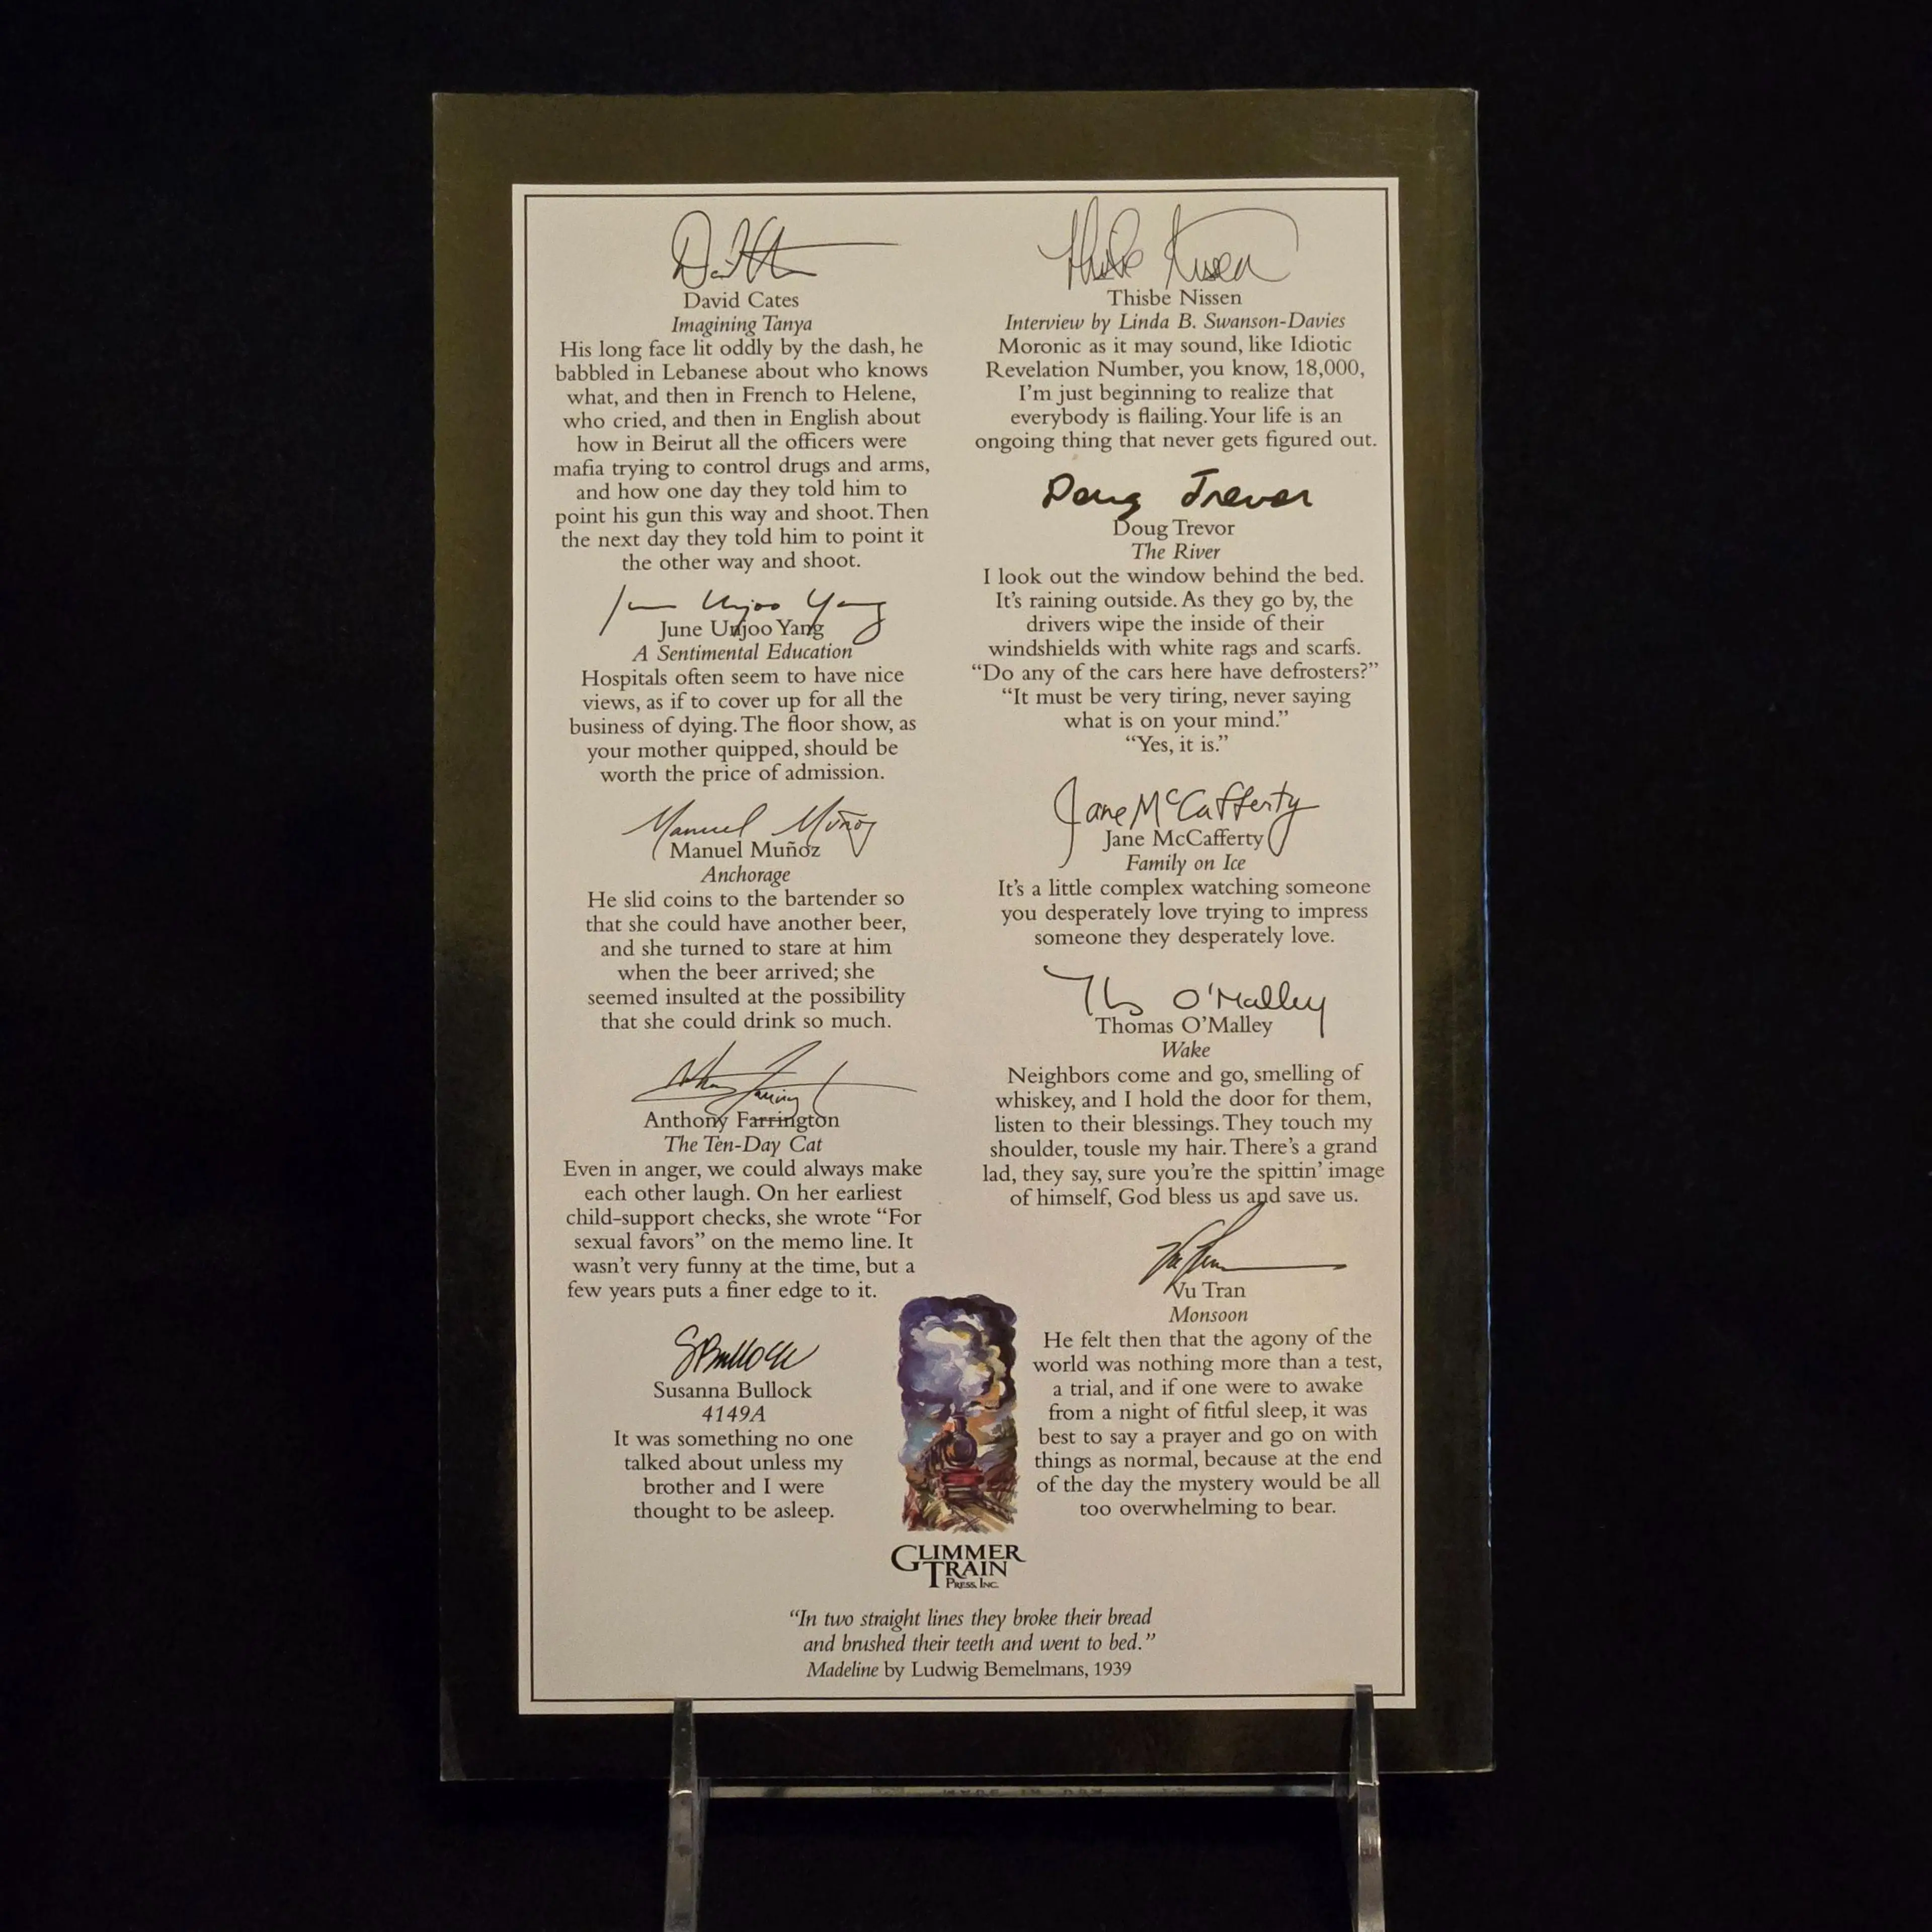 David Cates
Imagining Tanya
His long face lit oddly by the dash, he
babbled in Lebanese about who knows
what, and then in French to Helene,
who cried, and then in English about
how in Beirut all the officers were
mafia trying to control drugs and arms,
and how one day they told him to
point his gun this way and shoot. Then
the next day they told him to point it
the other way and shoot.
June Unjoo Yang
June Unjoo Yang
A Sentimental Education
Hospitals often seem to have nice
views, as if to cover up for all the
business of dying. The floor show, as
your mother quipped, should be
worth the price of admission.
Manuel Muñoz
Manuel Muñoz
Anchorage
He slid coins to the bartender so
that she could have another beer,
and she turned to stare at him
when the beer arrived; she
seemed insulted at the possibility
that she could drink so much.
Anthony Farrington
The Ten-Day Cat
Even in anger, we could always make
each other laugh. On her earliest
child-support checks, she wrote “For
sexual favors” on the memo line. It
wasn’t very funny at the time, but a
few years puts a finer edge to it.
SBullock
Susanna Bullock
4149A
It was something no one
talked about unless my
brother and I were
thought to be asleep.
Thisbe Nissen
Thisbe Nissen
Interview by Linda B. Swanson-Davies
Moronic as it may sound, like Idiotic
Revelation Number, you know, 18,000,
I’m just beginning to realize that
everybody is flailing. Your life is an
ongoing thing that never gets figured out.
Doug Trevor
Doug Trevor
The River
I look out the window behind the bed.
It’s raining outside. As they go by, the
drivers wipe the inside of their
windshields with white rags and scarfs.
“Do any of the cars here have defrosters?”
“It must be very tiring, never saying
what is on your mind.”
“Yes, it is.”
Jane McCafferty
Jane McCafferty
Family on Ice
It’s a little complex watching someone
you desperately love trying to impress
someone they desperately love.
O'Malley
Thomas O’Malley
Wake
Neighbors come and go, smelling of
whiskey, and I hold the door for them,
listen to their blessings. They touch my
shoulder, tousle my hair. There’s a grand
lad, they say, sure you’re the spittin’ image
of himself, God bless us and save us.
Vu Tran
Monsoon
He felt then that the agony of the
world was nothing more than a test,
a trial, and if one were to awake
from a night of fitful sleep, it was
best to say a prayer and go on with
things as normal, because at the end
of the day the mystery would be all
too overwhelming to bear.
GLIMMER
TRAIN
PRESS, INC.
“In two straight lines they broke their bread
and brushed their teeth and went to bed.”
Madeline by Ludwig Bemelmans, 1939